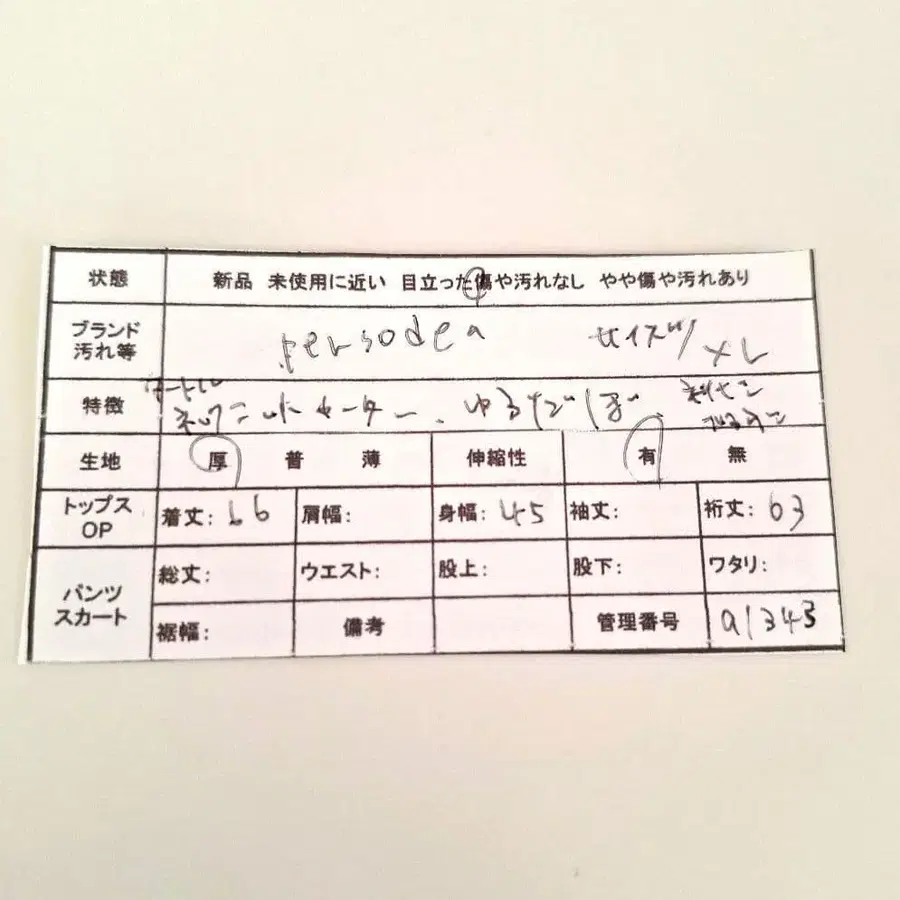 状態 新品 未使用に近い 目立った傷や汚れなし やや傷や汚れあり
ブランド
汚れ等 persodea サイズ XL
特徴 タートル
ネックニットセーター、ゆるだぼ
生地 厚 普 薄 伸縮性 有 無
トップス
OP 着丈: 66 肩幅: 身幅: 45 袖丈: 裄丈: 63
パンツ
スカート 総丈: ウエスト: 股上: 股下: ワタリ:
裾幅: 備考 管理番号 a1343